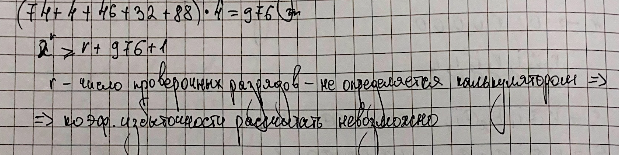 (74+4+46+32+88)·4=976
2^r ≥ r+976+1
r - число проверочных разрядов - не определяется калькулятором ⇒
⇒ коэф. избыточности рассчитать невозможно